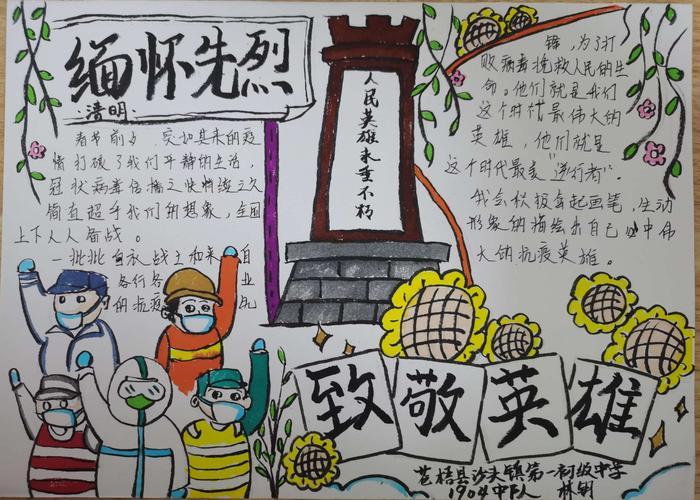 缅怀先烈
清明:
春节前夕,突如其来的疫
情打破了我们平静的生活,
冠状病毒传播之快持续之久
简直超乎我们的想象,全国
上下人人备战。
一批批白衣战士和来自
各行各业
的抗疫
人民英雄永垂不朽
锋,为了打
败病毒拯救人民的生
命。他们就是我们
这个时代最伟大的
英雄,他们就是
这个时代最美"逆行者"。
我会积极拿起画笔,生动
形象的描绘出自己心中伟
大的抗疫英雄。
致敬英雄
苍梧县沙头镇第一初级中学
1904